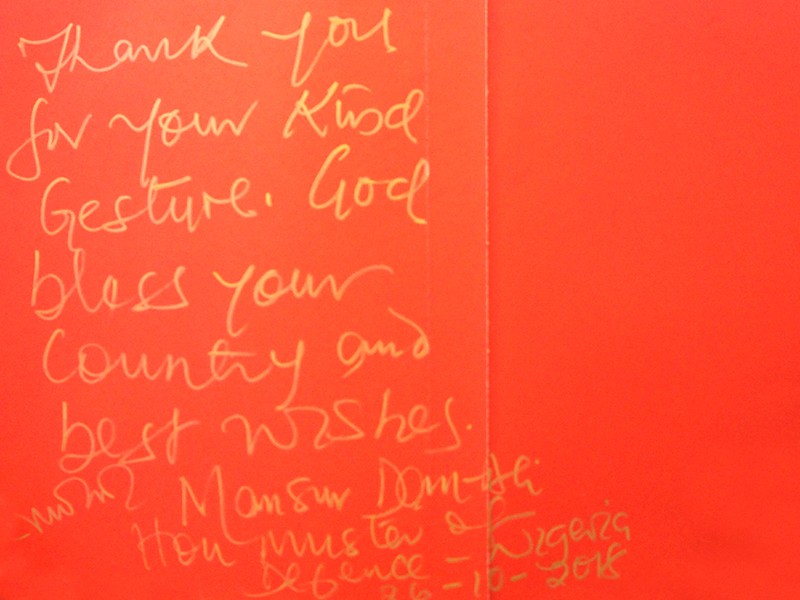 Thank you
for your Kind
Gesture. God
bless your
Country and
best wishes.
Mansur Dan-Ali
Hon Minister of
Defence - Nigeria
26-10-2018